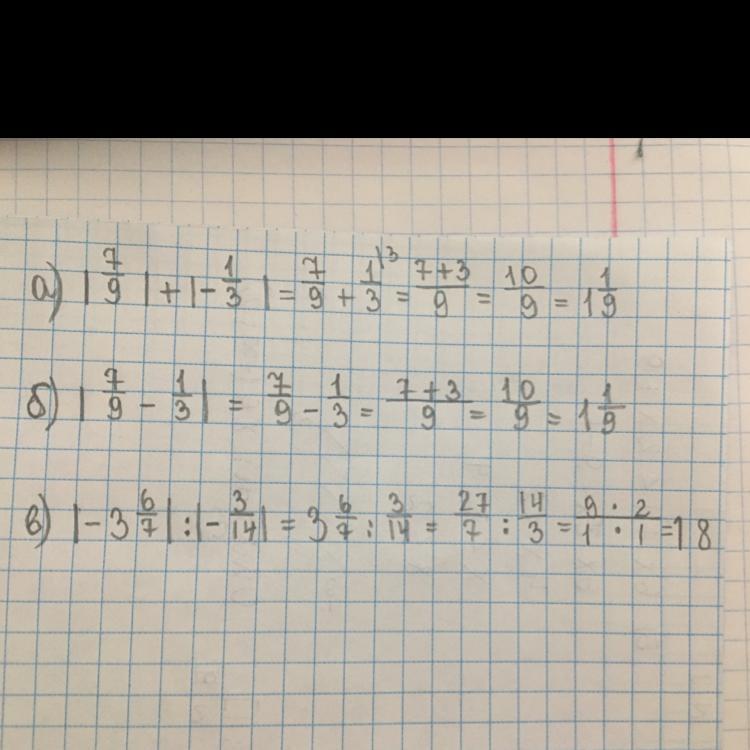 а) |7/9| + |-1/3| = 7/9 + 1/3\3 = 7+3/9 = 10/9 = 1 1/9
б) |7/9 - 1/3| = 7/9 - 1/3 = 7+3/9 = 10/9 = 1 1/9
в) |-3 6/7| : |-3/14| = 3 6/7 : 3/14 = 27/7 : 14/3 = 9·2/1·1 = 18